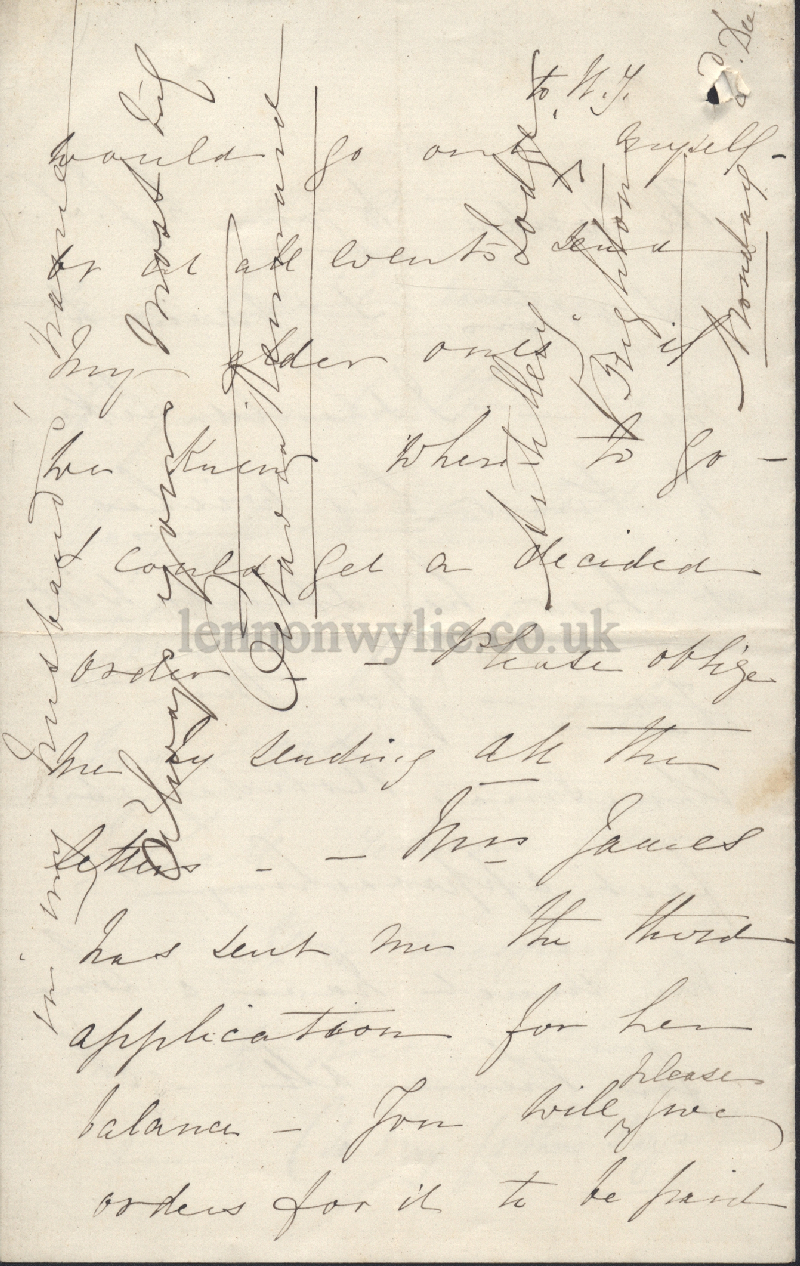 to W.J.
would go only myself -
or at all events send
my elder ones if
we knew where to go -
I could get a decided
order - - Please oblige
me by sending all the
letters - - Mrs James
has sent me the third
application for her
balance - You will please give
orders for it to be paid
in my husband's name
Always yours most try
Octavia Kennard
Lodge
Brighton
Monday
Dec
lennonwylie.co.uk